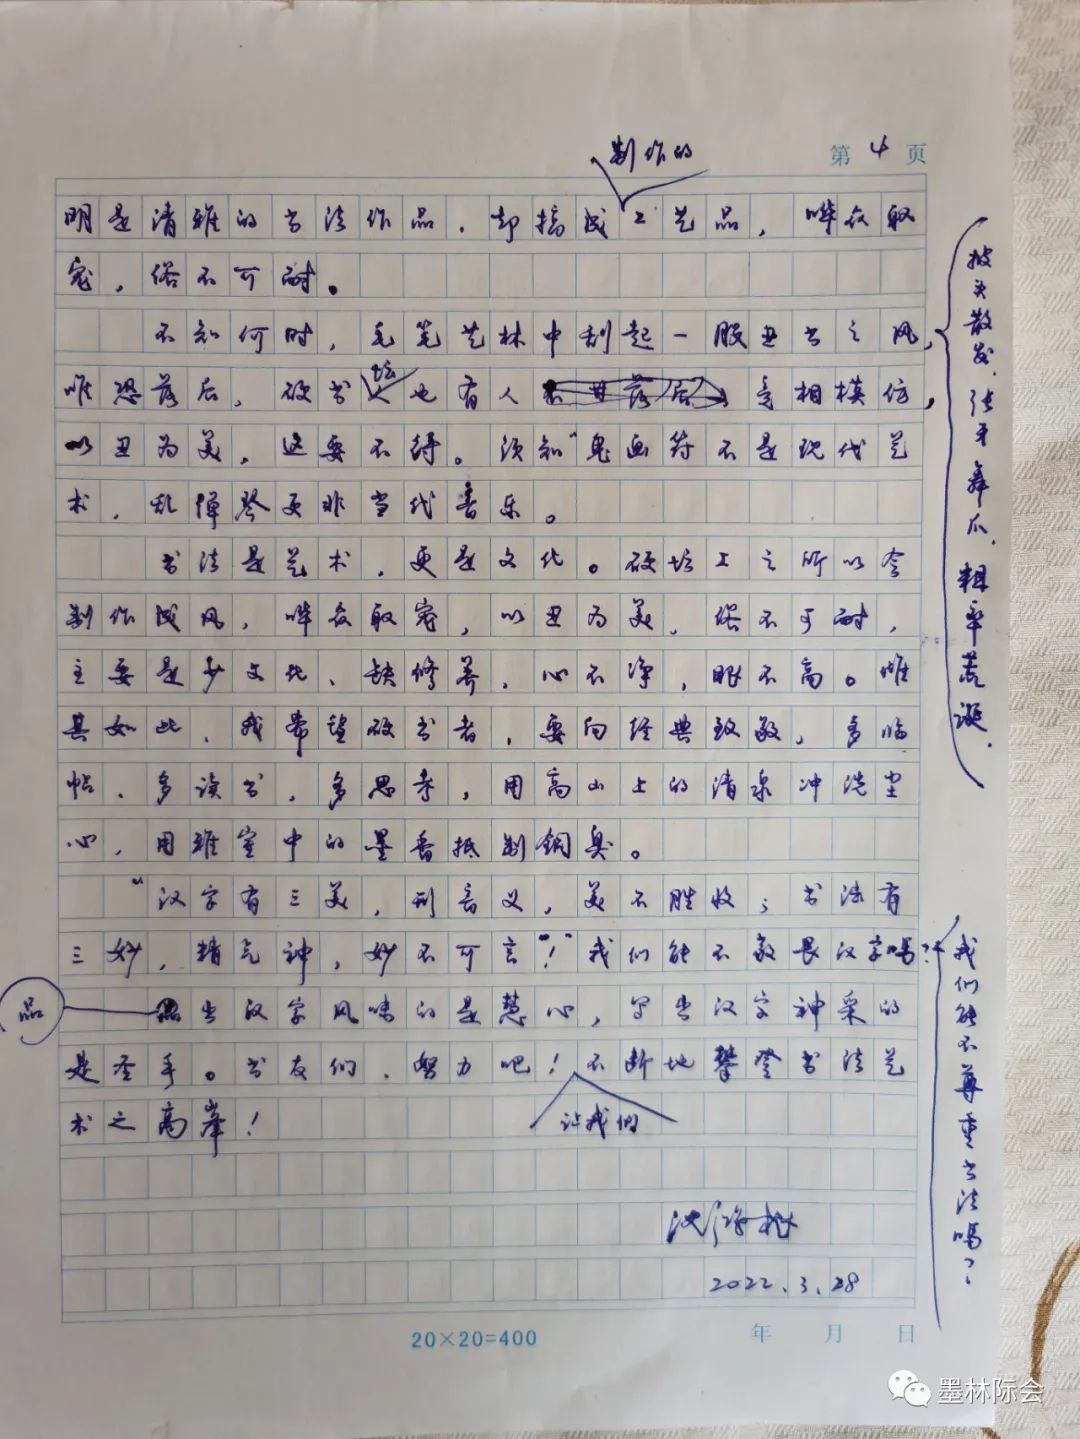 制作的
第4页
明是清雅的书法作品，却搞成工艺品，哗众取
宠，俗不可耐。
不知何时，毛笔艺林中刮起一股丑书之风，
披头散发、张牙舞爪、粗率荒诞，
唯恐落后，硬书坛也有人竞相模仿，
以丑为美，这要不得。须知“鬼画符不是现代艺
术，乱弹琴更非当代音乐。
书法是艺术，更是文化。硬坛上之所以会
制作成风，哗众取宠，以丑为美，俗不可耐，
主要是少文化、缺修养，心不净，眼不高。唯
其如此，我希望硬书者，要向经典致敬，多临
帖、多读书，多思考，用高山上的清泉冲洗尘
心，用雅室中的墨香抵制铜臭。
“汉字有三美，形音义，美不胜收；书法有
三妙，精气神，妙不可言”！我们能不敬畏汉字吗？
我们能不尊重书法吗？
品
出汉字风味的是慧心，写出汉字神采的
是圣手。书友们，努力吧！不断地攀登书法艺
让我们
术之高峰！
2022.3.28
20×20=400
年 月 日
墨林际会